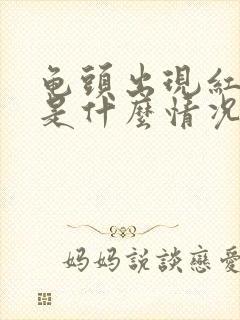 龟頭出現紅
是什麼情況
妈妈説談戀愛